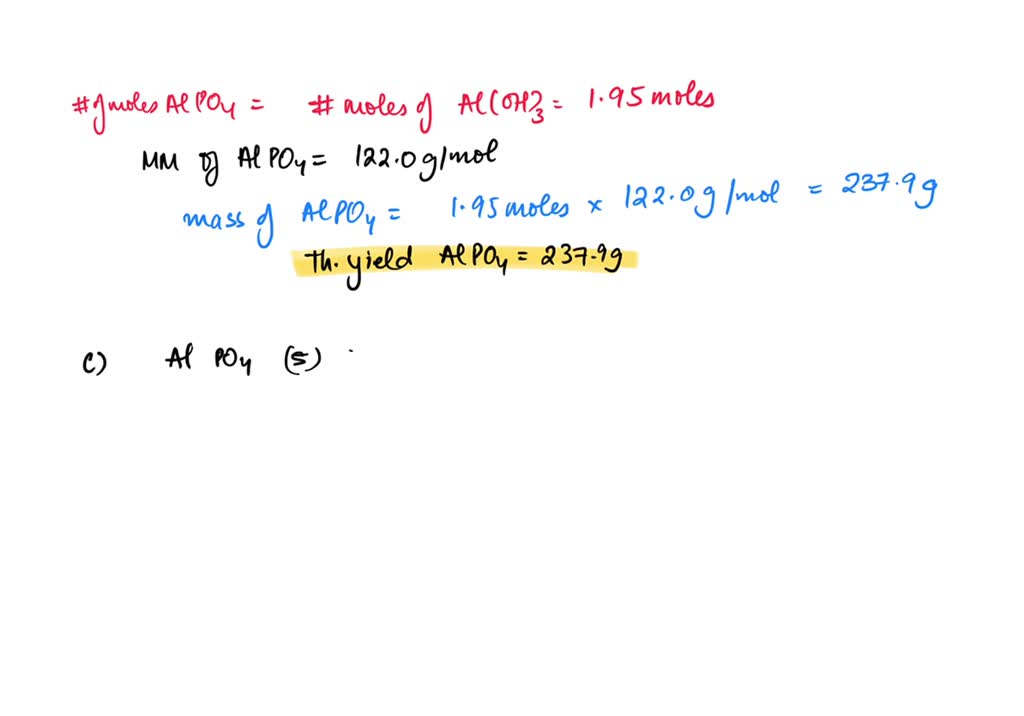 # of moles AlPO4 = # moles of Al(OH)3 = 1.95 moles
MM of AlPO4 = 122.0 g/mol
mass of AlPO4 = 1.95 moles × 122.0 g/mol = 237.9 g
Th. yield AlPO4 = 237.9 g
c) AlPO4 (s)